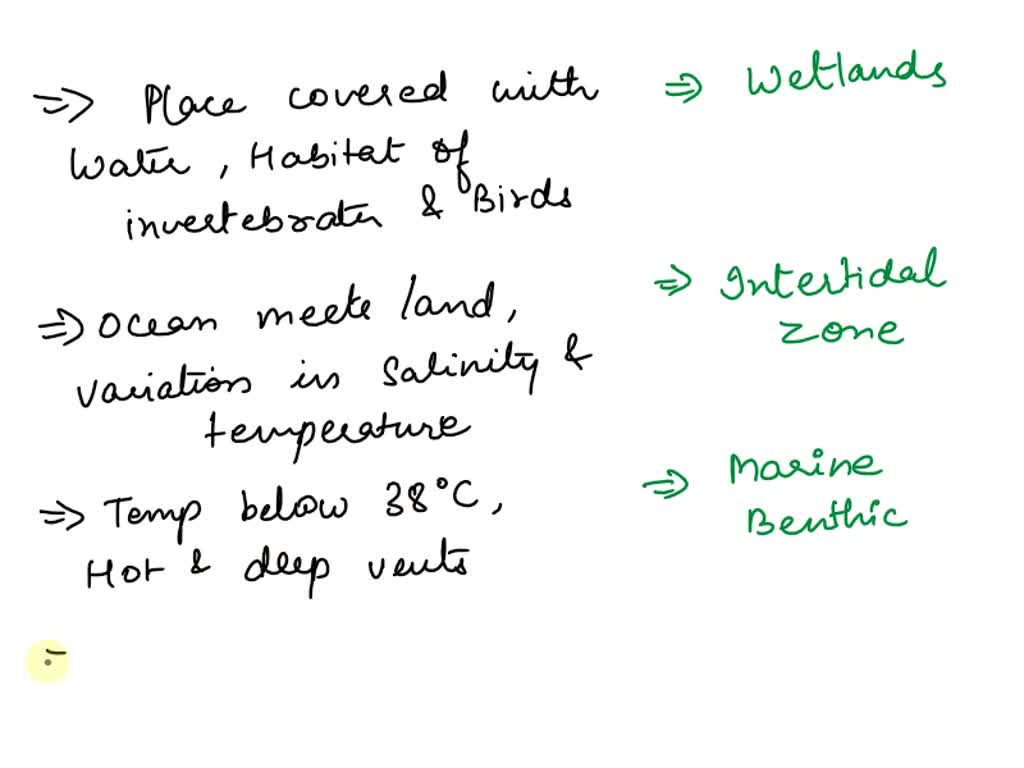 ⇒ Place covered with ⇒ Wetlands
Water, Habitat of
invertebrates & Birds
⇒ Ocean meets land, ⇒ Intertidal
variation in salinity & zone
temperature
⇒ Temp below 38°C, ⇒ Marine
Hot & deep vents Benthic